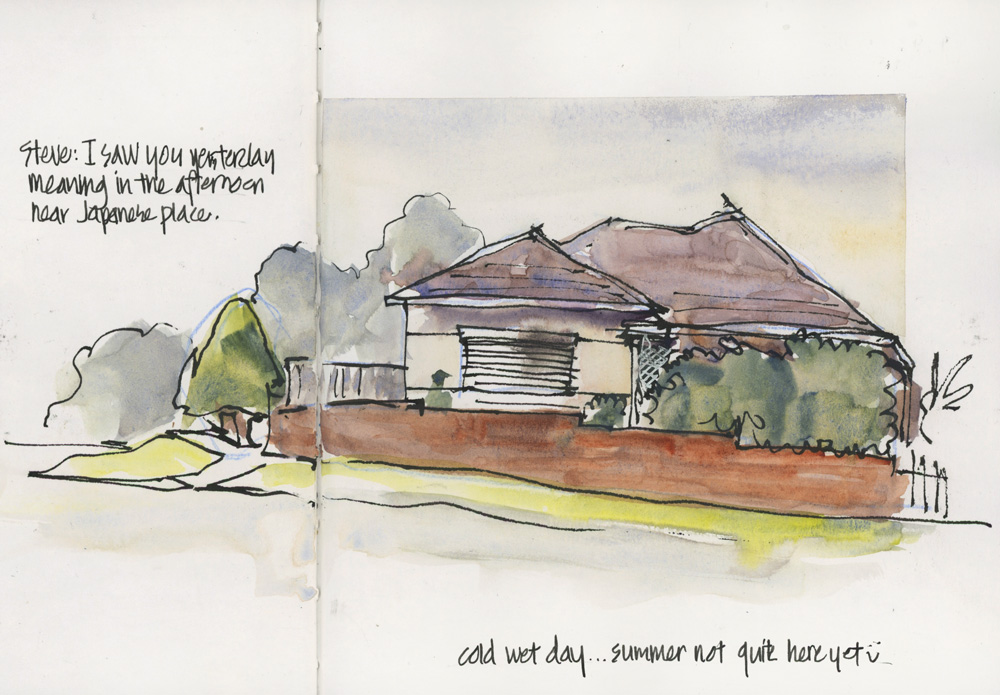 Steve: I saw you yesterday
meaning in the afternoon
near Japanese place.
cold wet day... summer not quite here yet